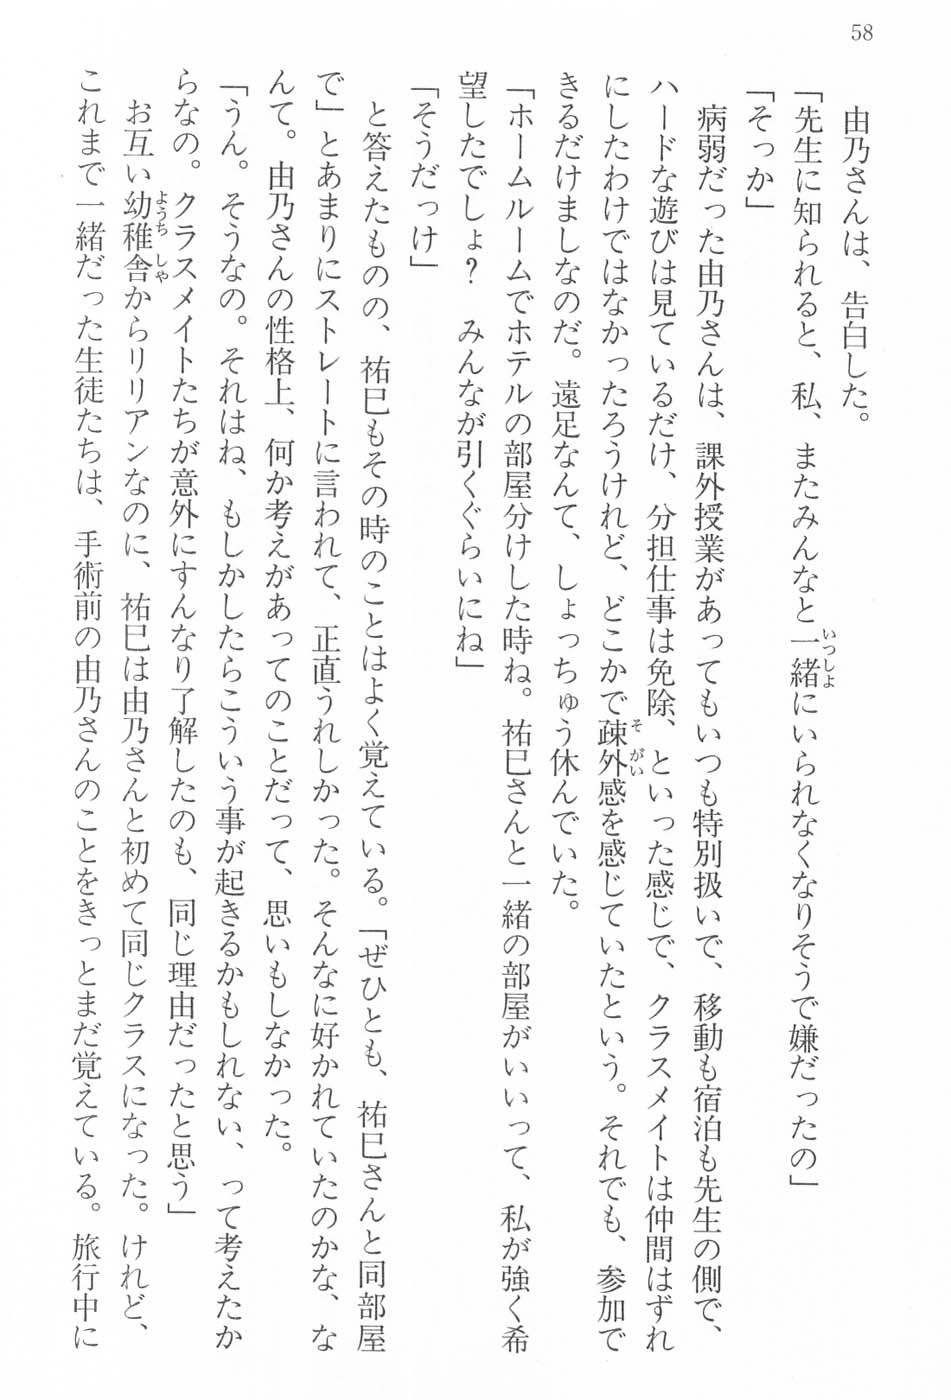 58
由乃さんは、告白した。
「先生に知られると、私、またみんなと一緒にいられなくなりそうで嫌だったの」
「そっか」
病弱だった由乃さんは、課外授業があってもいつも特別扱いで、移動も宿泊も先生の側で、
ハードな遊びは見ているだけ、分担仕事は免除、といった感じで、クラスメイトは仲間はずれ
にしたわけではなかったろうけれど、どこかで疎外感を感じていたという。それでも、参加で
きるだけましなのだ。遠足なんて、しょっちゅう休んでいた。
「ホームルームでホテルの部屋分けした時ね。祐巳さんと一緒の部屋がいいって、私が強く希
望したでしょ？　みんなが引くぐらいにね」
「そうだっけ」
と答えたものの、祐巳もその時のことはよく覚えている。「ぜひとも、祐巳さんと同部屋
で」とあまりにストレートに言われて、正直うれしかった。そんなに好かれていたのかな、な
んて。由乃さんの性格上、何か考えがあってのことだって、思いもしなかった。
「うん。そうなの。それはね、もしかしたらこういう事が起きるかもしれない、って考えたか
らなの。クラスメイトたちが意外にすんなり了解したのも、同じ理由だったと思う」
お互い幼稚舎からリリアンなのに、祐巳は由乃さんと初めて同じクラスになった。けれど、
これまで一緒だった生徒たちは、手術前の由乃さんのことをきっとまだ覚えている。旅行中に